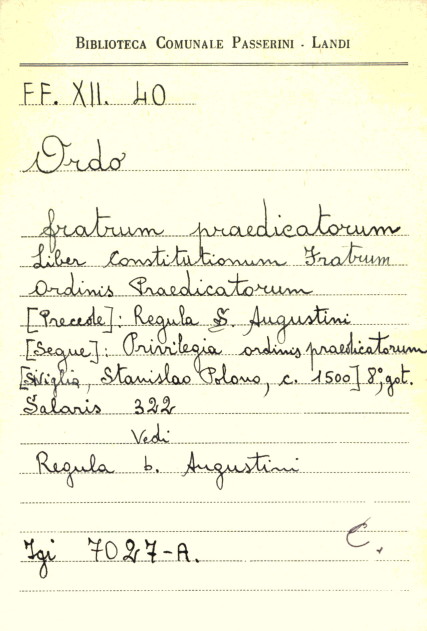 BIBLIOTECA COMUNALE PASSERINI - LANDI
FF. XII. 40
Ordo
fratrum praedicatorum
Liber Constitutionum Fratrum
Ordinis Praedicatorum
[Precede]: Regula S. Augustini
[Segue]: Privilegia ordinis praedicatorum
[Siviglia, Stanislao Polono, c. 1500] 8°, got.
Salaris 322
Vedi
Regula b. Augustini
Igi 7027-A.
C.